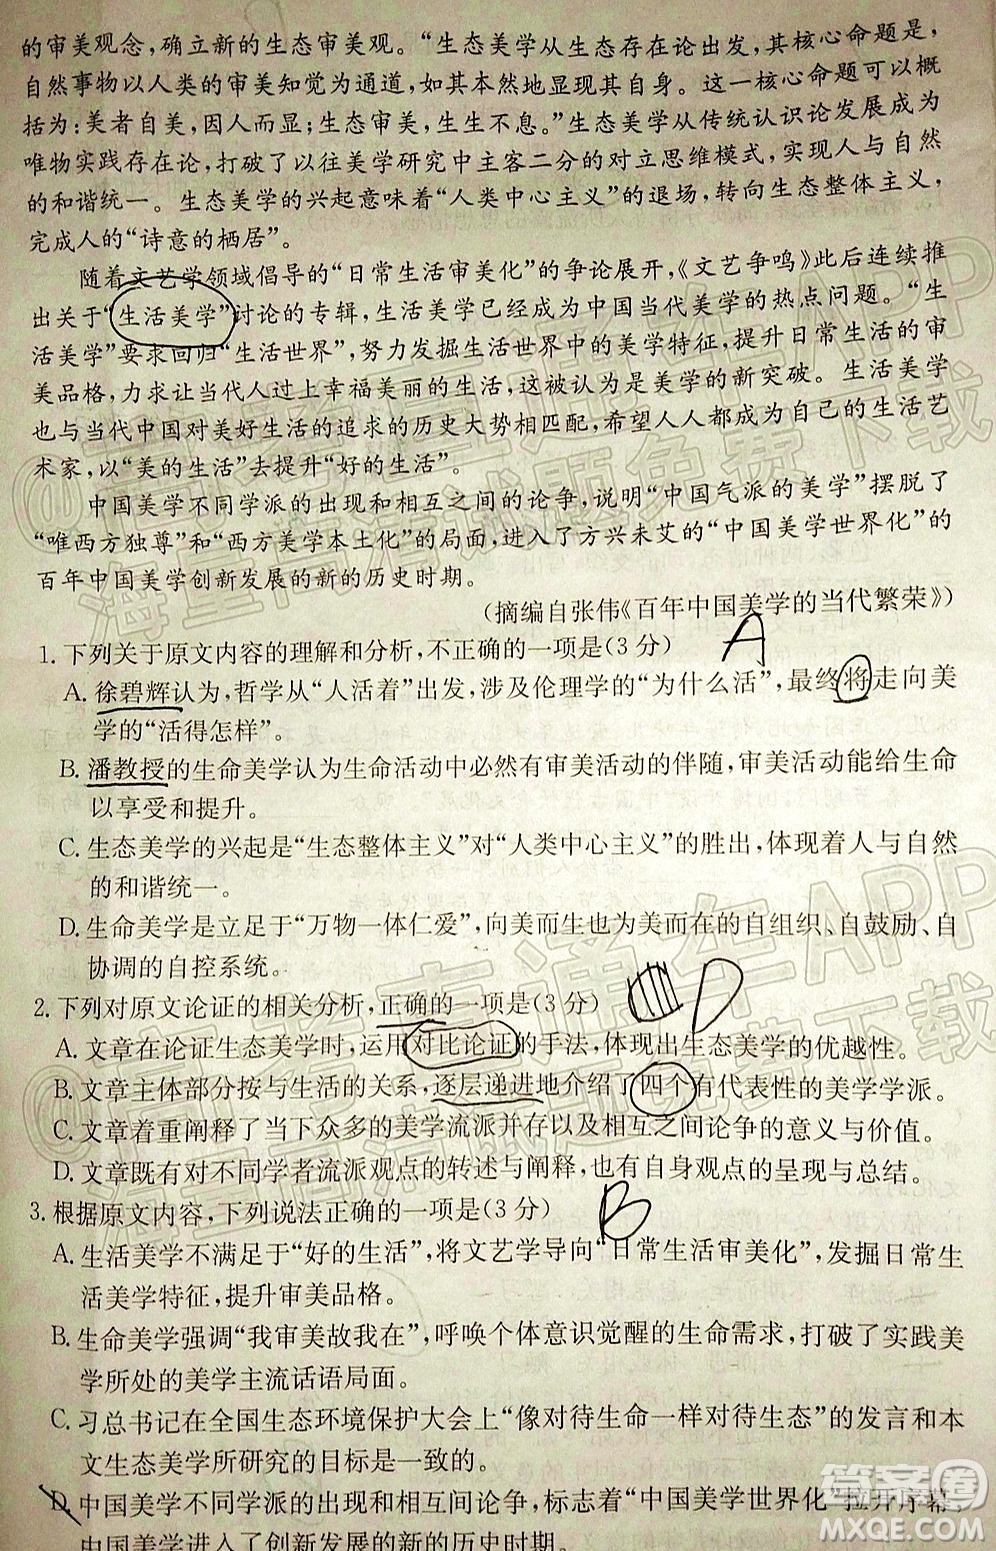 的审美观念,确立新的生态审美观。“生态美学从生态存在论出发,其核心命题是,
自然事物以人类的审美知觉为通道,如其本然地显现其自身。这一核心命题可以概
括为:美者自美,因人而显;生态审美,生生不息。”生态美学从传统认识论发展成为
唯物实践存在论,打破了以往美学研究中主客二分的对立思维模式,实现人与自然
的和谐统一。生态美学的兴起意味着“人类中心主义”的退场,转向生态整体主义,
完成人的“诗意的栖居”。
随着文艺学领域倡导的“日常生活审美化”的争论展开,《文艺争鸣》此后连续推
出关于“生活美学”讨论的专辑,生活美学已经成为中国当代美学的热点问题。“生
活美学”要求回归“生活世界”,努力发掘生活世界中的美学特征,提升日常生活的审
美品格,力求让当代人过上幸福美丽的生活,这被认为是美学的新突破。生活美学
也与当代中国对美好生活的追求的历史大势相匹配,希望人人都成为自己的生活艺
术家,以“美的生活”去提升“好的生活”。
中国美学不同学派的出现和相互之间的论争,说明“中国气派的美学”摆脱了
“唯西方独尊”和“西方美学本土化”的局面,进入了方兴未艾的“中国美学世界化”的
百年中国美学创新发展的新的历史时期。
(摘编自张伟《百年中国美学的当代繁荣》)
1.下列关于原文内容的理解和分析,不正确的一项是(3分) A
A.徐碧辉认为,哲学从“人活着”出发,涉及伦理学的“为什么活”,最终将走向美
学的“活得怎样”。
B.潘教授的生命美学认为生命活动中必然有审美活动的伴随,审美活动能给生命
以享受和提升。
C.生态美学的兴起是“生态整体主义”对“人类中心主义”的胜出,体现着人与自然
的和谐统一。
D.生命美学是立足于“万物一体仁爱”,向美而生也为美而在的自组织、自鼓励、自
协调的自控系统。
2.下列对原文论证的相关分析,正确的一项是(3分) D
A.文章在论证生态美学时,运用对比论证的手法,体现出生态美学的优越性。
B.文章主体部分按与生活的关系,逐层递进地介绍了四个有代表性的美学学派。
C.文章着重阐释了当下众多的美学流派并存以及相互之间论争的意义与价值。
D.文章既有对不同学者流派观点的转述与阐释,也有自身观点的呈现与总结。
3.根据原文内容,下列说法正确的一项是(3分) B
A.生活美学不满足于“好的生活”,将文艺学导向“日常生活审美化”,发掘日常生
活美学特征,提升审美品格。
B.生命美学强调“我审美故我在”,呼唤个体意识觉醒的生命需求,打破了实践美
学所处的美学主流话语局面。
C.习总书记在全国生态环境保护大会上“像对待生命一样对待生态”的发言和本
文生态美学所研究的目标是一致的。
D.中国美学不同学派的出现和相互间论争,标志着“中国美学世界化”拉开序幕,
中国美学进入了创新发展的新的历史时期。
@高考直通车APP
海量高考试题免费下载
@高考直通车APP
海量高考试题免费下载
答案圈
MXQE.COM